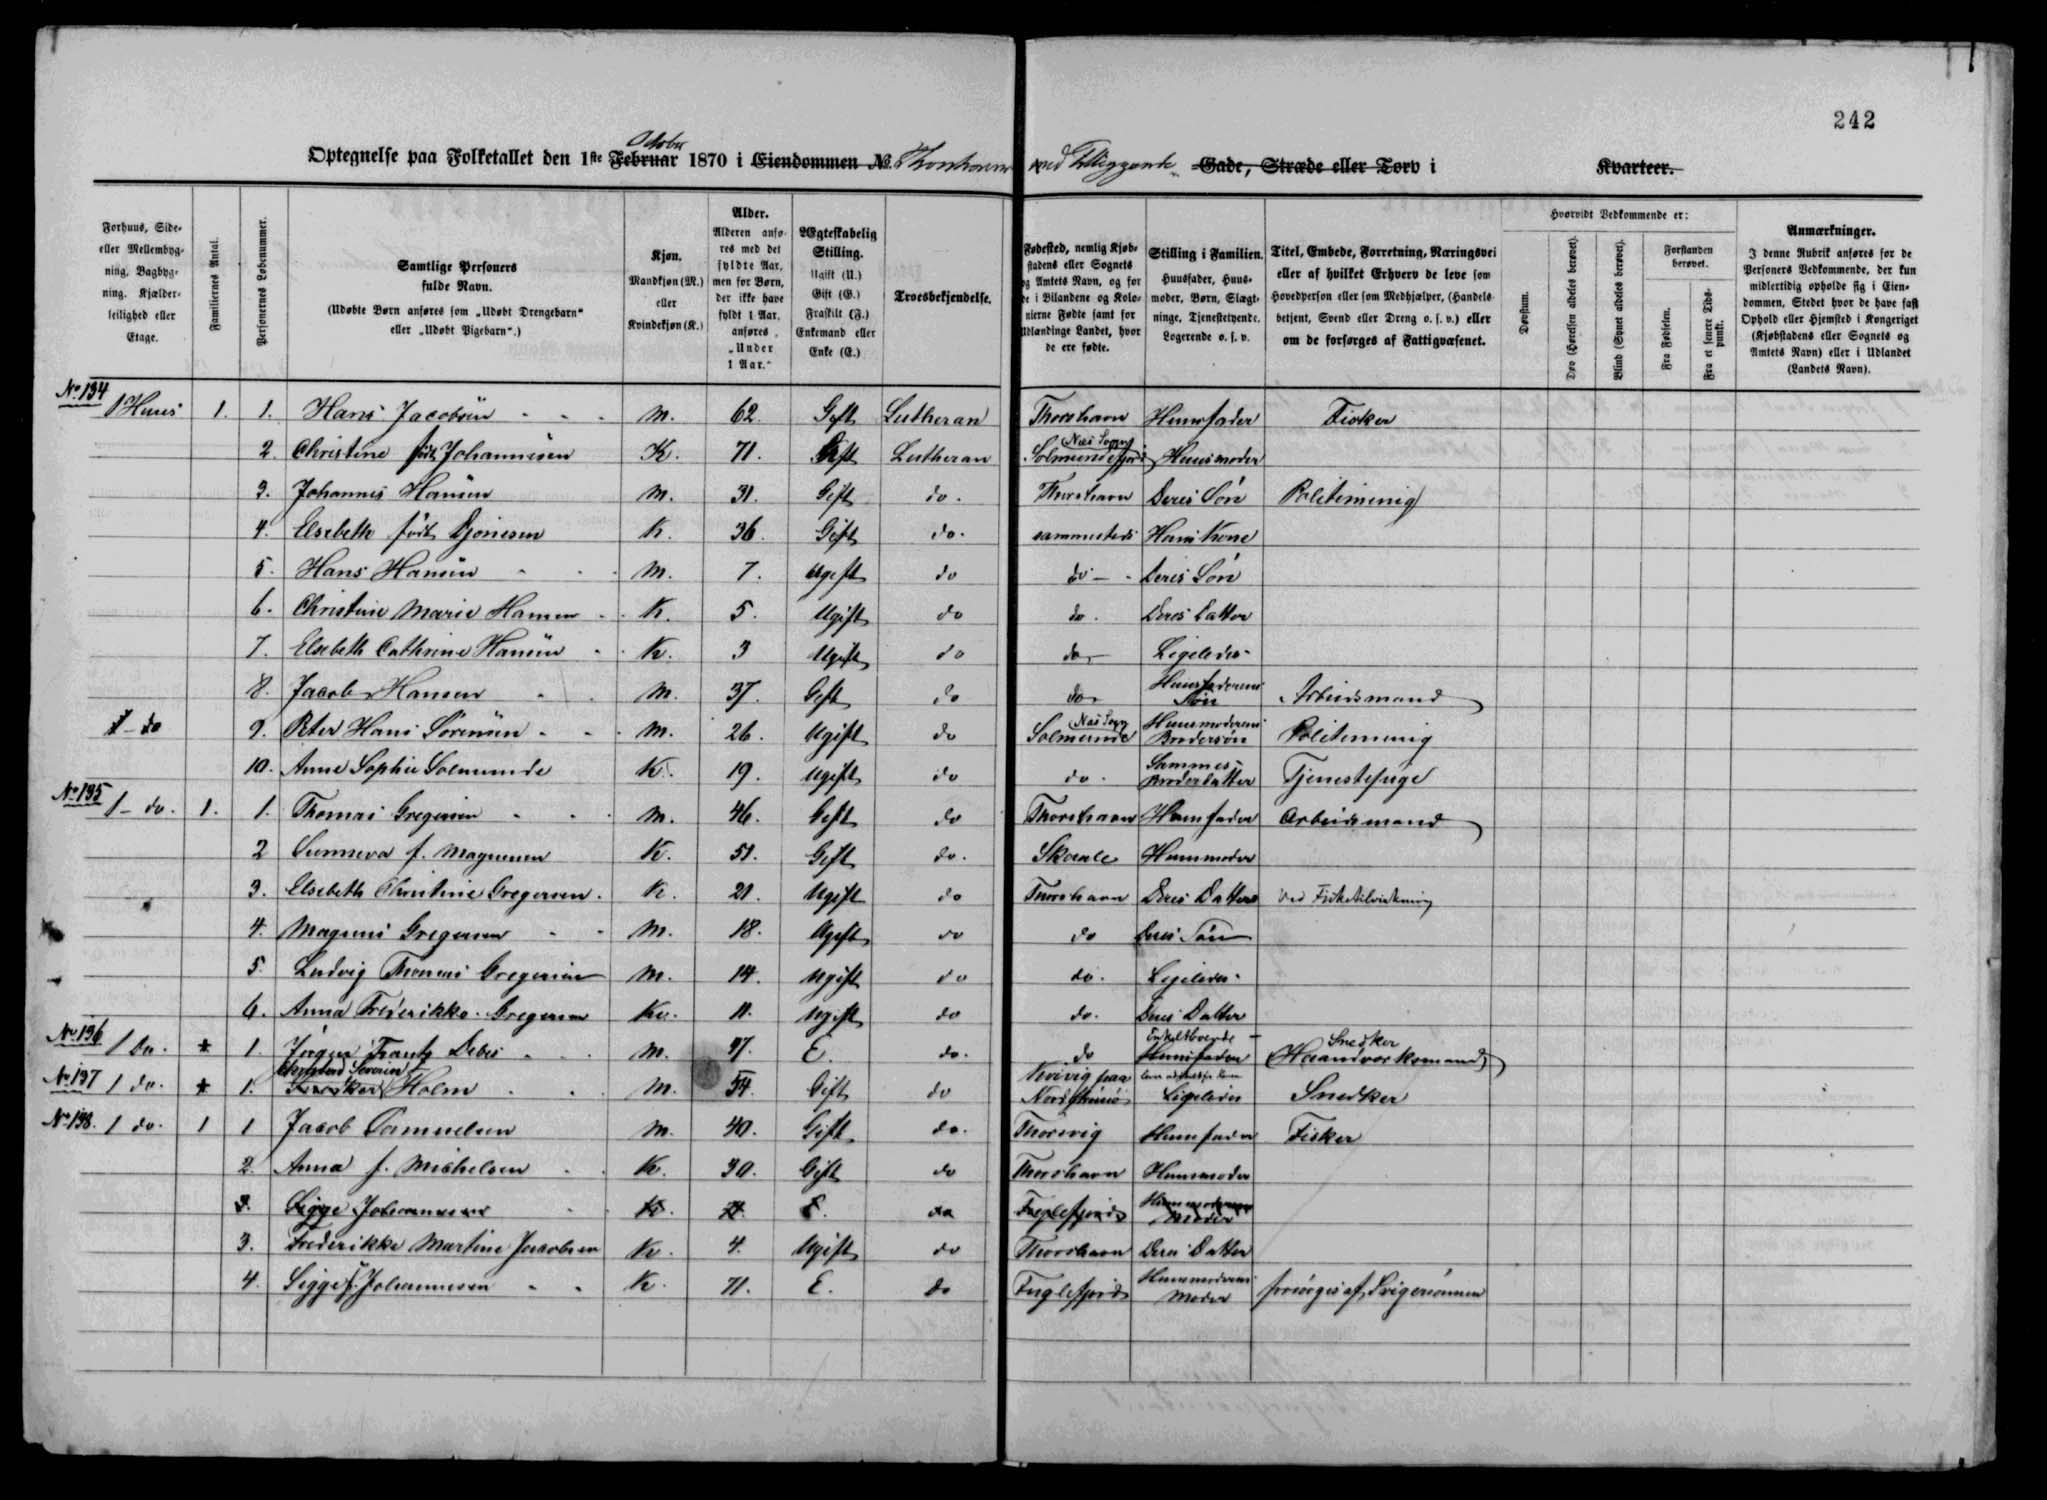 242
Optegnelse paa Folketallet den 1ste Februar October 1870 i Eiendommen No. Thorshavn med Tilliggende Gade, Stræde eller Torv i Kvarteer.
Forhuus, Side- eller Mellembyg- ning, Bagbyg- ning, Kjælder- leilighed eller Etage.
Familiernes Antal.
Personernes Løbenummer.
Samtlige Personers fulde Navn.
(Udøbte Børn anføres som „Udøbt Drengebarn“ eller „Udøbt Pigebarn“.)
Kjøn. Mandkjøn (M.) eller Kvindekjøn (K.)
Alder. Alderen anfø- res med det fyldte Aar, men for Børn, der ikke have fyldt 1 Aar, anføres „Under 1 Aar.“
Ægteskabelig Stilling. Ugift (U.) Gift (G.) Fraskilt (F.) Enkemand eller Enke (E.)
Troesbekjendelse.
Fødested, nemlig Kjøb- stadens eller Sognets og Amtets Navn, og for de i Bilandene og Kolo- nierne Fødte samt for Udlændinge Landet, hvor de ere fødte.
Stilling i Familien. Huusfader, Huus- moder, Børn, Slægt- ninge, Tjenestetyende, Logerende o. s. v.
Titel, Embede, Forretning, Næringsvei eller af hvilket Erhverv de leve som Hovedperson eller som Medhjælper, (Handels- betjent, Svend eller Dreng o. s. v.) eller om de forsørges af Fattigvæsenet.
Hvorvidt Vedkommende er:
Døvstum.
Døv (Hørelsen aldeles berøvet).
Blind (Synet aldeles berøvet).
Forstanden berøvet.
Fra Fødselen.
Fra et senere Tids- punkt.
Anmærkninger.
I denne Rubrik anføres for de Personers Vedkommende, der kun midlertidig opholde sig i Eien- dommen, Stedet hvor de have fast Ophold eller Hjemsted i Kongeriget (Kjøbstadens eller Sognets og Amtets Navn) eller i Udlandet (Landets Navn).
No. 134
1 Huus 1. 1. Hans Jacobsen M. 62. Gift Lutheran Thorshavn Huusfader Fisker
2. Christine født Johannesen K. 71. Gift Lutheran Solmundefjord Næs Sogn Huusmoder
3. Johannes Hansen M. 31. Gift do. Thorshavn Deres Søn Politimenig
4. Elsebeth født Djonesen K. 36. Gift do. sammesteds Hans Kone
5. Hans Hansen M. 7. Ugift do do Deres Søn
6. Christine Marie Hansen K. 5. Ugift do do. Deres Datter
7. Elsebeth Cathrine Hansen K. 3 Ugift do do Ligeledes
8. Jacob Hansen M. 37. Gift do do Huusfaderens Søn Arbeidsmand
1 do 9. Peter Hans Sørensen M. 26. Ugift do Solmunde Næs Sogn Huusmoderens Brodersøn Politimenig
10. Anne Sophie Solmunde K. 19. Ugift do do. Sammes Broderdatter Tjenestepige
No. 135
1 do. 1. 1. Thomas Gregersen M. 46. Gift do Thorshavn Huusfader Arbeidsmand
2 Sunneva f. Magnusen K. 51. Gift do. Skaale Huusmoder
3. Elsebeth Christine Gregersen K. 21. Ugift do Thorshavn Deres Datter ved Fisketilvirkning
4. Magnus Gregersen M. 18. Ugift do do Deres Søn
5. Ludvig Thomas Gregersen M. 14. Ugift do do. Ligeledes
6. Anna Frederikke Gregersen Kv. 11. Ugift do do. Deres Datter
No. 136
1 do. 1. Jørgen Frantz Debes M. 47. E. do. do Enkeltboende Huusfader Snedker Haandværksmand
No. 137 1 do. 1. Christend Severin Snedker Holm M. 54. Gift do Kvivig paa Nordstrømø Ligeledes Snedker
No. 138. 1 do. 1 1 Jacob Samuelsen M. 40. Gift do. Thorsvig Huusfader Fisker
2. Anna f. Michelsen K. 30. Gift do Thorshavn Huusmoder
3. Sigge Johannesen K. E. do Fuglefjord Huusmoderens Moder
3. Frederikke Martine Jacobsen K. 4. Ugift do Thorshavn Deres Datter
4. Sigge f. Johannesen K. 71. E. do Fuglefjord Huusmoderens Moder forsørges af Svigersønnen